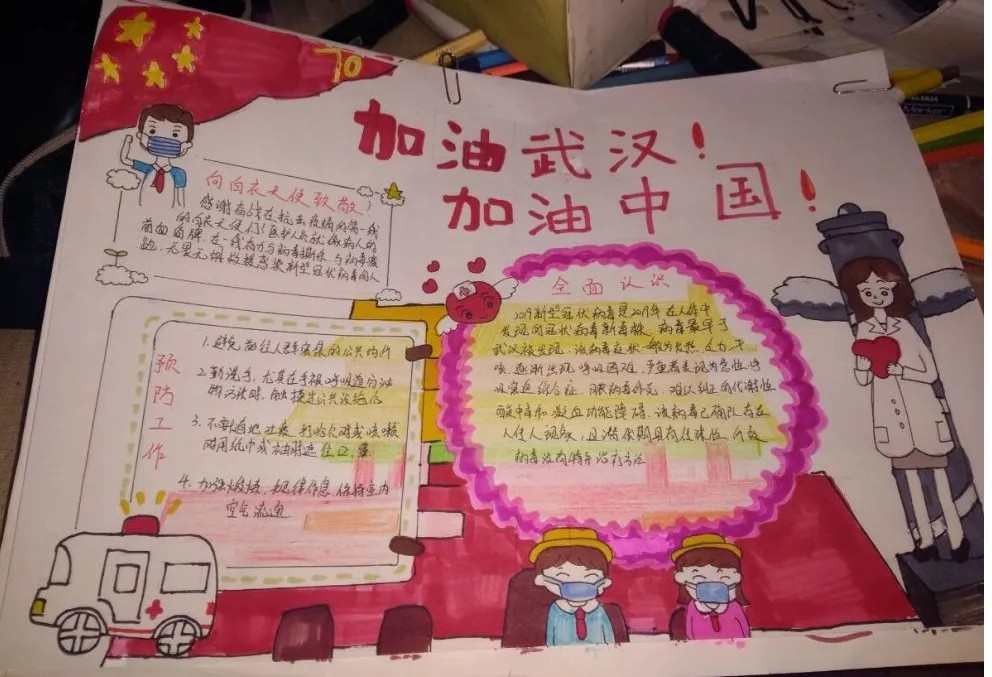 70
加油武汉！
加油中国！
向白衣天使致敬！
感谢奋战在抗击疫情的第一线
的白衣天使们！医护人员就像病人的
前面盾牌，在一线奋力与病毒
全面认识
2019新型冠状病毒是2019年在人体中
发现的冠状病毒新毒株，病毒最早于
武汉被发现。该病毒症状一般为发热、乏力、干
咳、逐渐出现呼吸困难，严重者表现为急性呼
吸窘迫综合症、脓毒病休克、难以纠正的代谢性
酸中毒和凝血功能障碍。该病毒已确认存在
人传人现象，且潜伏期具有传染性。
病毒没有特异治疗方法
预防工作
1.避免前往人群密集的公共场所
2.勤洗手，尤其在手被呼吸道分泌
物污染时、触摸过公共设施后
3.不要随地吐痰，打哈欠时或咳嗽
时用纸巾或袖肘遮住口、鼻
4.加强锻炼，规律作息，保持室内
空气流通
Marker